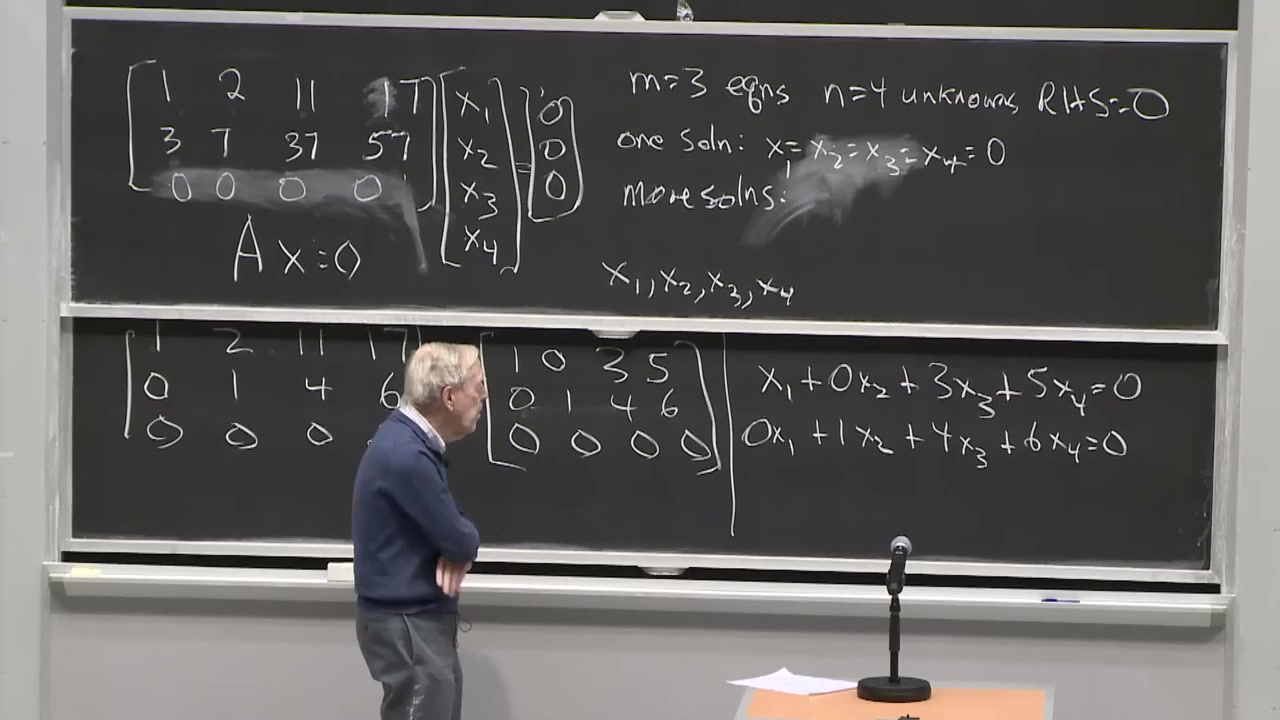 1 2 11 17
3 7 37 57
0 0 0 0
x1
x2
x3
x4
=
0
0
0
A x = 0
m=3 eqns n=4 unknowns RHS=0
one soln: x1=x2=x3=x4=0
more solns:
x1, x2, x3, x4
1 2 11 17
0 1 4 6
0 0 0
1 0 3 5
0 1 4 6
0 0 0 0
x1+0x2+3x3+5x4=0
0x1+1x2+4x3+6x4=0